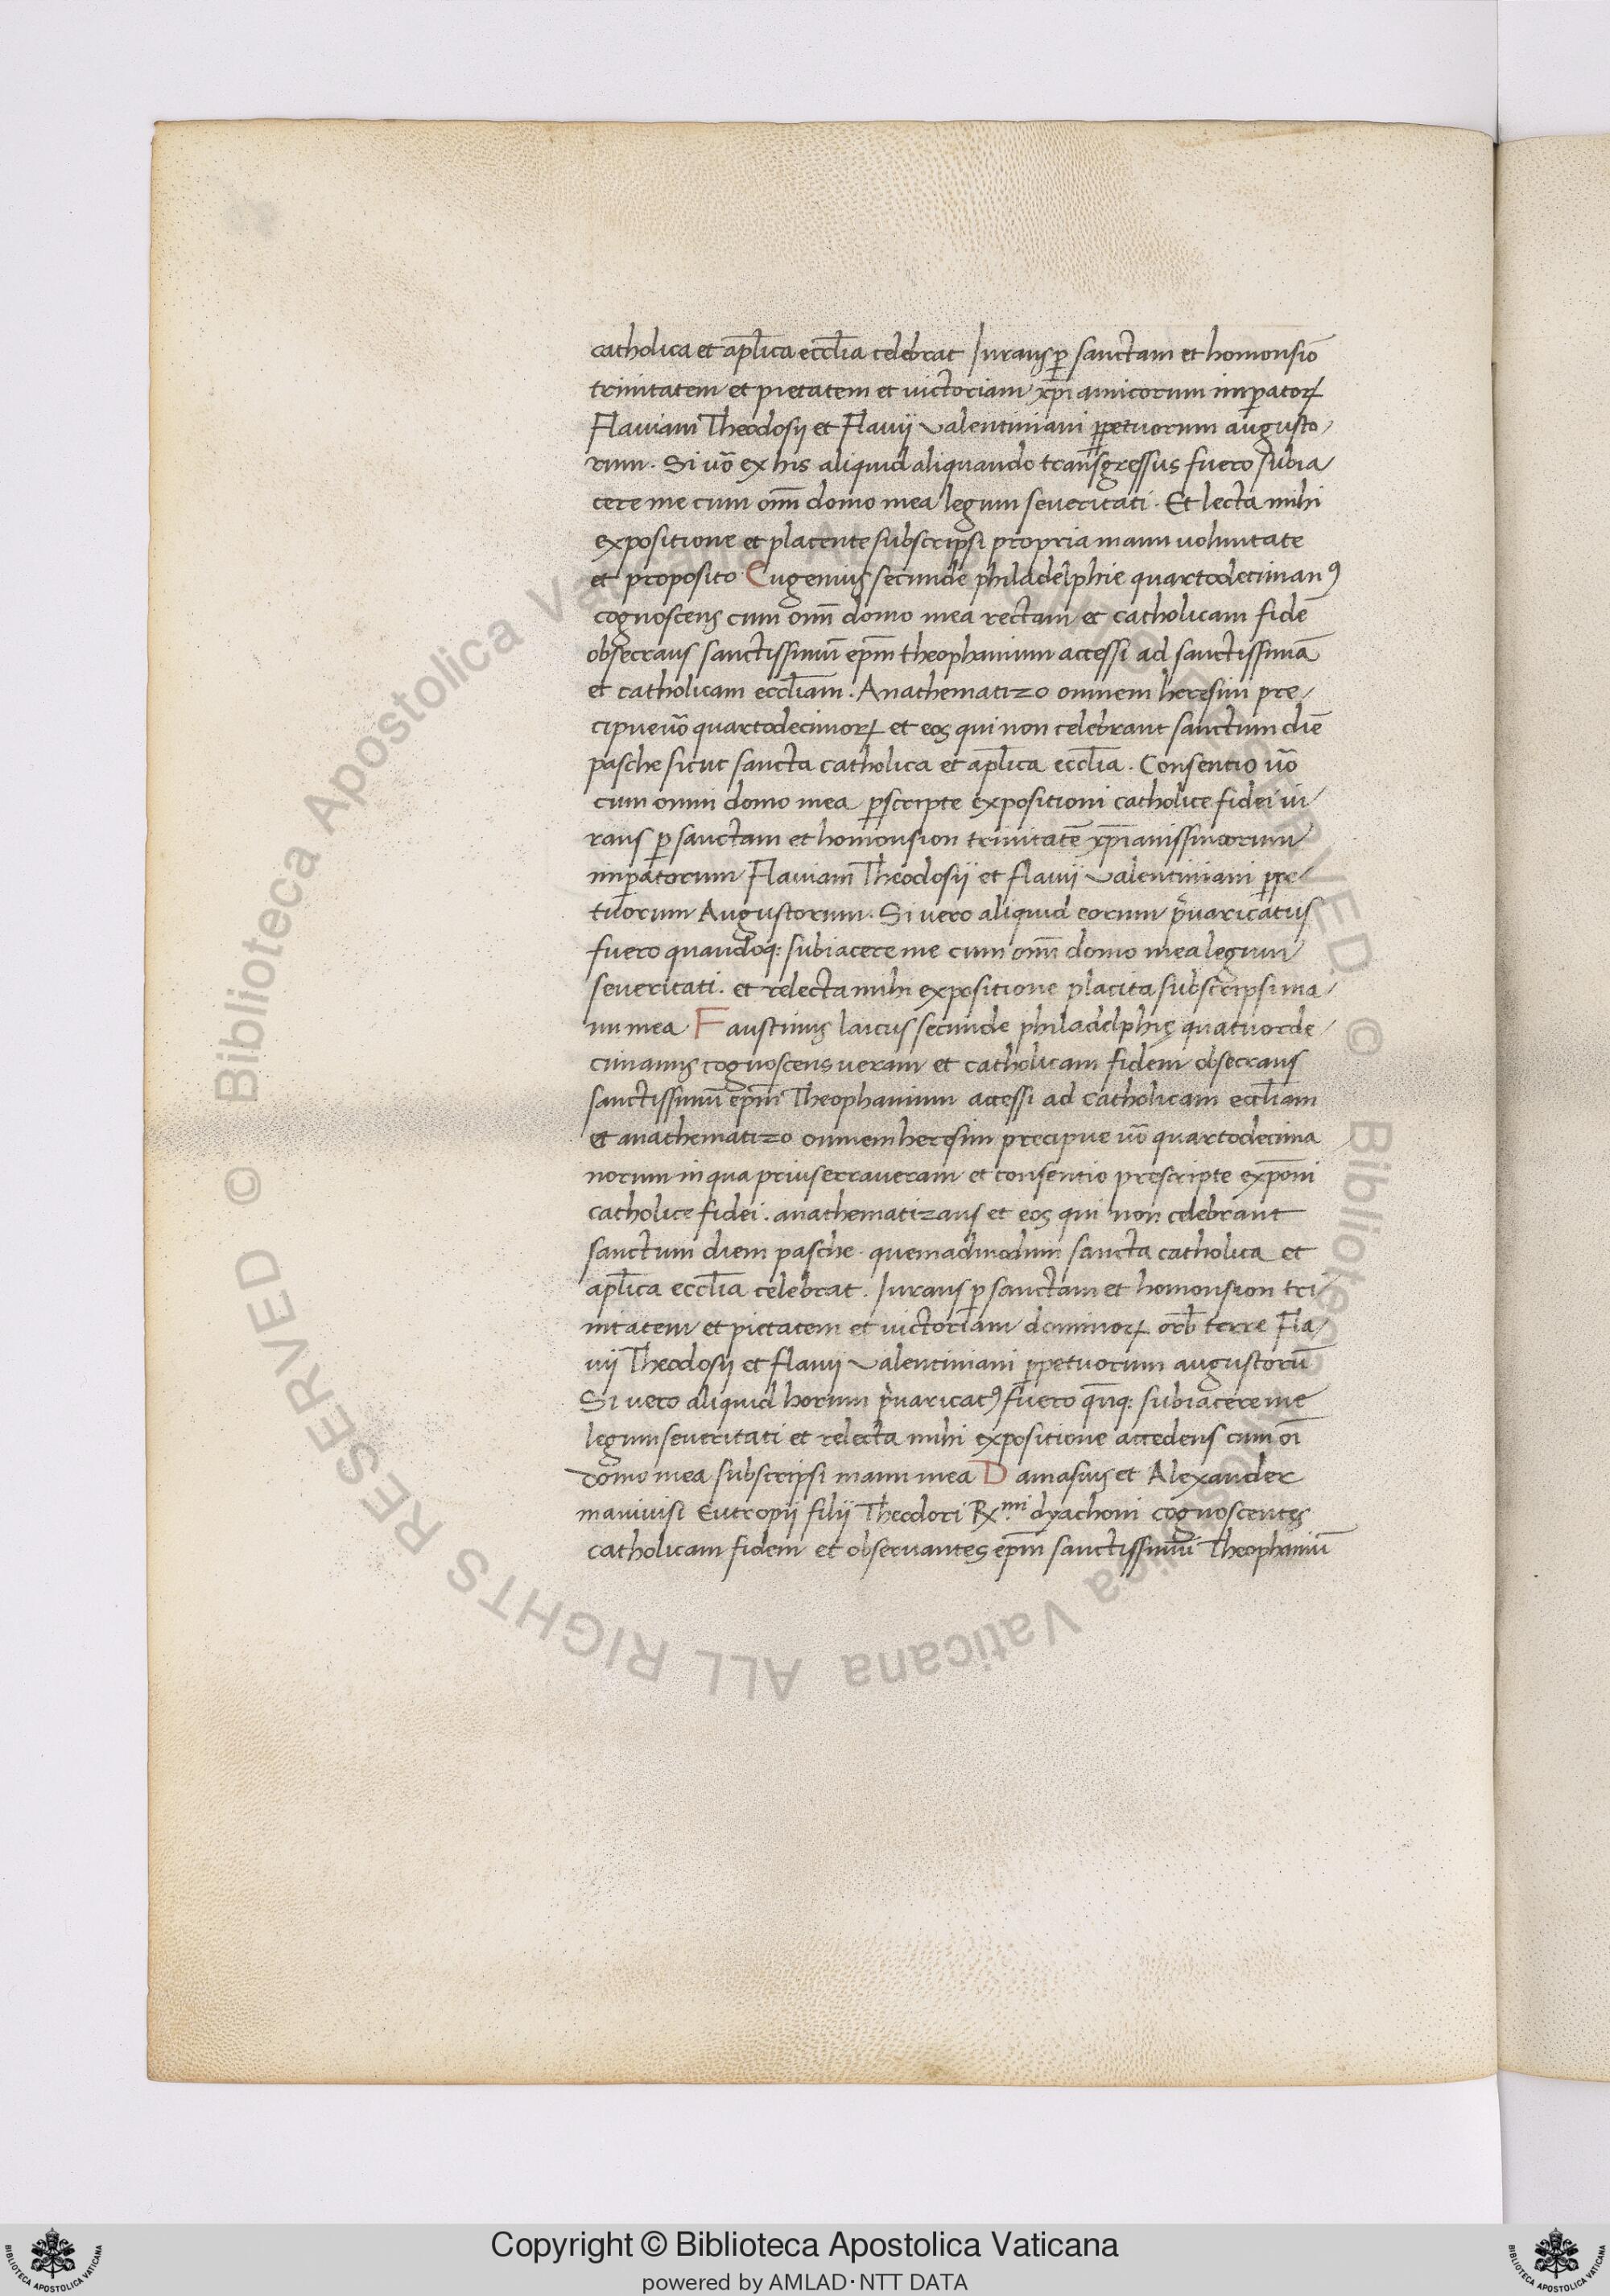 catholica et apl̄ica eccl̄ia celebrat Iurans ꝑ sanctam et homousiō
trinitatem et pietatem et uictoriam xp̄i amicorum imꝑatoꝝ
Flauiani Theodosij et Flauij Valentiniani ꝑpetuorum augusto/
rum. Si uō ex his aliquid aliquando trānsgressus fuero subia/
cere me cum om̄i domo mea legum seueritati. Et lecta mihi
expositione et placente subscripsi propria manu uoluntate
et proposito Eugenius secunde philadelphie quartodecimanꝰ
cognoscens cum om̄i domo mea rectam et catholicam fidē
obsecrans sanctissimū ep̄m theophanium accessi ad sanctissimā
et catholicam eccl̄iam. Anathematizo omnem heresim pre/
cipue uō quartodecimoꝝ et eos qui non celebrant sanctum diē
pasche sicut sancta catholica et apl̄ica eccl̄ia. Consentio uō
cum omni domo mea ꝑscripte expositioni catholice fidei iu/
rans ꝑ sanctam et homousion trinitatē xp̄ianissimorum
imꝑatorum Flauiani Theodosij et flauij Valentiniani ꝑpe/
tuorum Augustorum. Si uero aliquid eorum p̄uaricatus
fuero quandoq: subiacere me cum om̄i domo mea legum
seueritati. et relecta mihi expositione placita subscripsi ma/
nu mea. Faustinus laicus secunde philadelphię quatuorde/
cimanus cognoscens ueram et catholicam fidem obsecrans
sanctissimū ep̄m Theophanium accessi ad catholicam eccl̄iam
et anathematizo omnem heresim precipue uō quartodecima
norum in qua prius erraueram et consentio prescripte exp̄oni
catholice fidei. anathematizans et eos qui non celebrant
sanctum diem pasche. quemadmodum sancta catholica et
apl̄ica eccl̄ia celebrat. Iurans ꝑ sanctam et homousion tri/
nitatem et pietatem et uictoriam dominoꝝ orb̄ terre Fla/
uij Theodosij et flauij Valentiniani ꝑpetuorum augustorū
Si uero aliquid horum p̄uaricatꝰ fuero qn̄q: subiacere me
legum seueritati et relecta mihi expositione accedens cum oī
domo mea subscripsi manu mea Damasus et Alexander
Eutropij filij Theodori dyachoni cognoscentes
catholicam fidem et obseruantes ep̄m sanctissimū Theophaniū
© Biblioteca Apostolica Vaticana ALL RIGHTS RESERVED
Copyright © Biblioteca Apostolica Vaticana
powered by AMLAD·NTT DATA
BIBLIOTECA APOSTOLICA VATICANA
BIBLIOTECA APOSTOLICA VATICANA